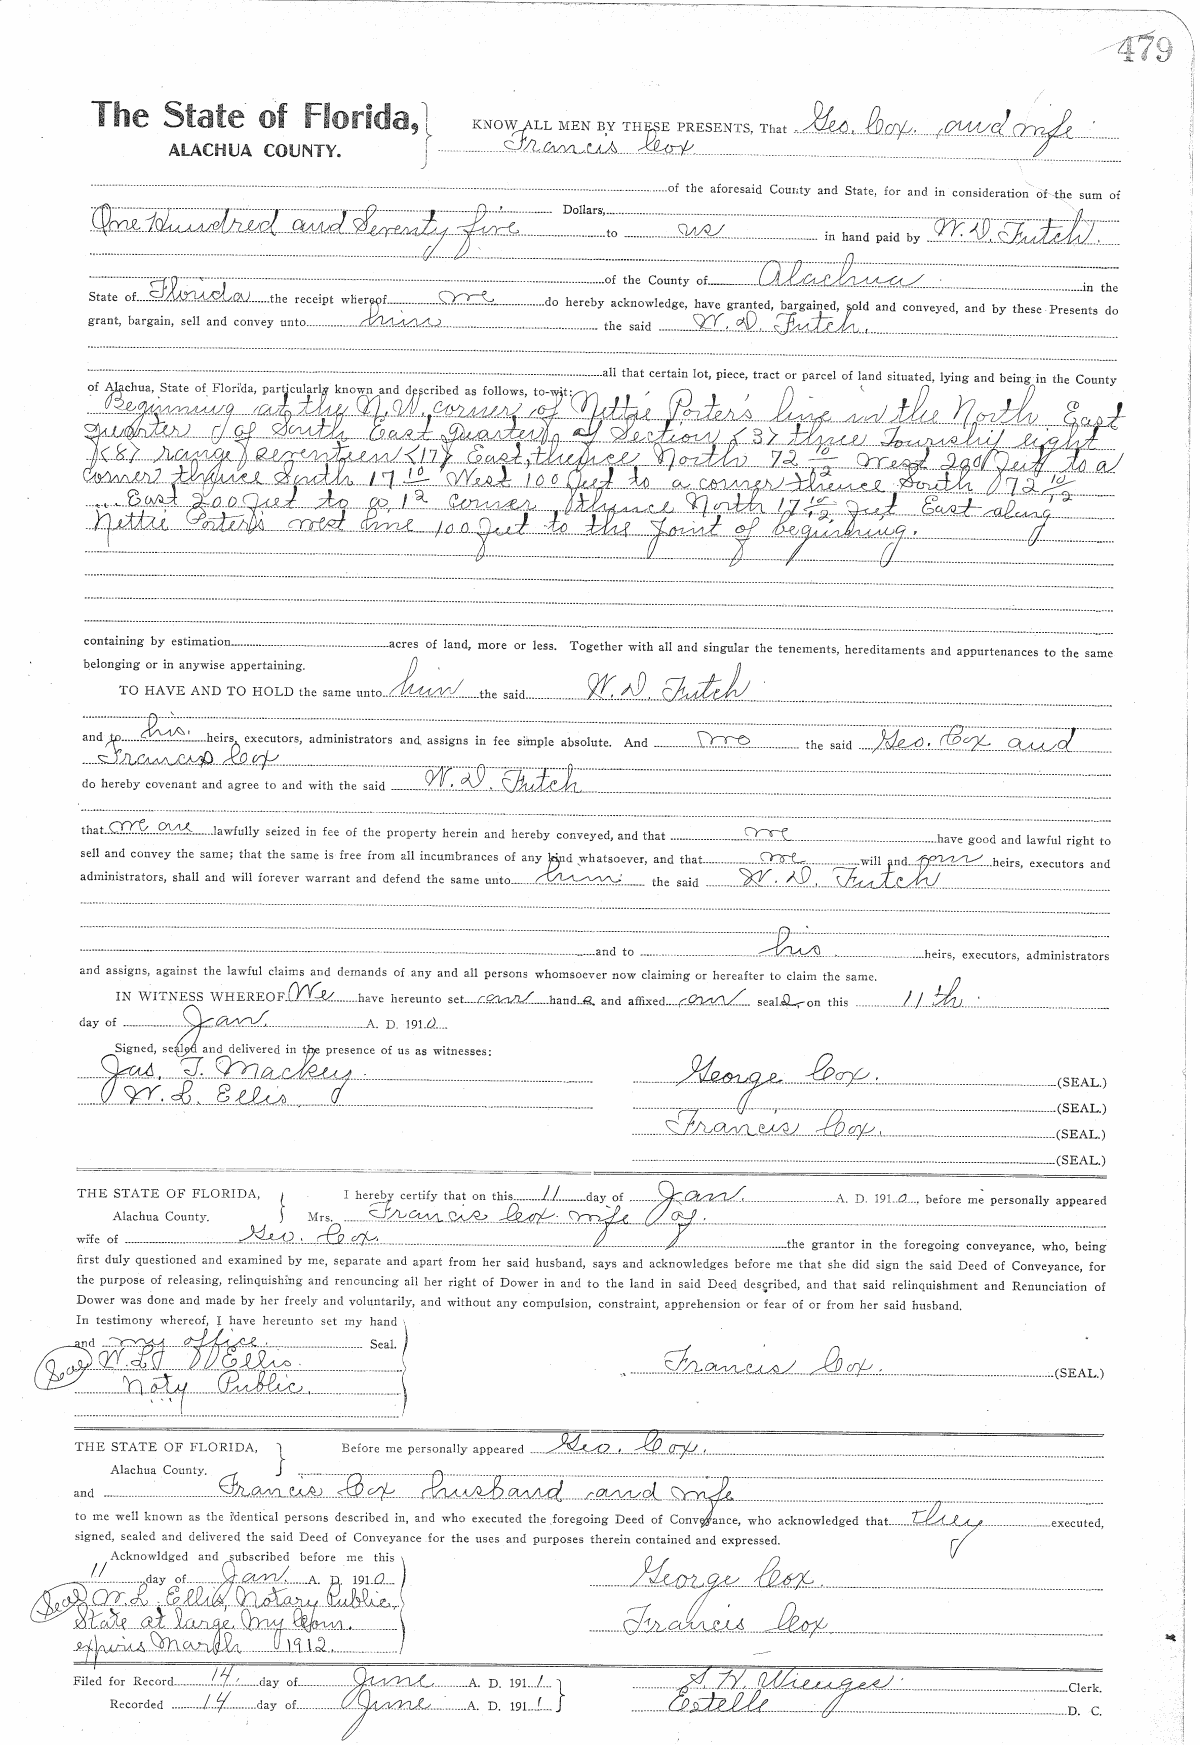 479
The State of Florida,
ALACHUA COUNTY.
KNOW ALL MEN BY THESE PRESENTS, That Geo. Cox. and wife
Francis Cox
of the aforesaid County and State, for and in consideration of the sum of
One Hundred and Seventy five Dollars, to us in hand paid by W. D. Futch.
of the County of Alachua in the
State of Florida the receipt whereof we do hereby acknowledge, have granted, bargained, sold and conveyed, and by these Presents do
grant, bargain, sell and convey unto him the said W. D. Futch.
all that certain lot, piece, tract or parcel of land situated, lying and being in the County
of Alachua, State of Florida, particularly known and described as follows, to-wit:
Beginning at the N.W. corner of Nettie Porter's line in the North East
quarter of South East quarter of Section <3> three Township eight
<8> range seventeen <17> East, thence North 72 10/12 West 200 feet to a
corner thence South 17 10/12 West 100 feet to a corner thence South 72 10/12
East 200 feet to a corner thence North 17 10/12 feet East along
Nettie Porter's west line 100 feet to the point of beginning.
containing by estimation acres of land, more or less. Together with all and singular the tenements, hereditaments and appurtenances to the same
belonging or in anywise appertaining.
TO HAVE AND TO HOLD the same unto him the said W. D. Futch
and to his heirs, executors, administrators and assigns in fee simple absolute. And we the said Geo. Cox and
Francis Cox
do hereby covenant and agree to and with the said W. D. Futch
that we are lawfully seized in fee of the property herein and hereby conveyed, and that we have good and lawful right to
sell and convey the same; that the same is free from all incumbrances of any kind whatsoever, and that we will and our heirs, executors and
administrators, shall and will forever warrant and defend the same unto him the said W. D. Futch
and to his heirs, executors, administrators
and assigns, against the lawful claims and demands of any and all persons whomsoever now claiming or hereafter to claim the same.
IN WITNESS WHEREOF We have hereunto set our hands and affixed our seals on this 11th
day of Jan. A. D. 1910
Signed, sealed and delivered in the presence of us as witnesses:
Jas. T. Mackey.
W. L. Ellis
George Cox. (SEAL.)
(SEAL.)
Francis Cox. (SEAL.)
(SEAL.)
THE STATE OF FLORIDA,
Alachua County.
I hereby certify that on this 11 day of Jan. A. D. 1910, before me personally appeared
Mrs. Francis Cox wife of.
wife of Geo. Cox. the grantor in the foregoing conveyance, who, being
first duly questioned and examined by me, separate and apart from her said husband, says and acknowledges before me that she did sign the said Deed of Conveyance, for
the purpose of releasing, relinquishing and renouncing all her right of Dower in and to the land in said Deed described, and that said relinquishment and Renunciation of
Dower was done and made by her freely and voluntarily, and without any compulsion, constraint, apprehension or fear of or from her said husband.
In testimony whereof, I have hereunto set my hand
and my office. Seal.
Seal W. L. Ellis.
Noty Public.
Francis Cox. (SEAL.)
THE STATE OF FLORIDA,
Alachua County.
Before me personally appeared Geo. Cox.
and Francis Cox husband and wife
to me well known as the identical persons described in, and who executed the foregoing Deed of Conveyance, who acknowledged that they executed,
signed, sealed and delivered the said Deed of Conveyance for the uses and purposes therein contained and expressed.
Acknowldged and subscribed before me this
11 day of Jan. A. D. 1910.
Seal W. L. Ellis, Notary Public.
State at large. My Com.
expires March 1912.
George Cox.
Francis Cox
Filed for Record 14. day of June A. D. 1911
Recorded 14 day of June A. D. 1911
S. H. Wienges Clerk.
Estelle D. C.